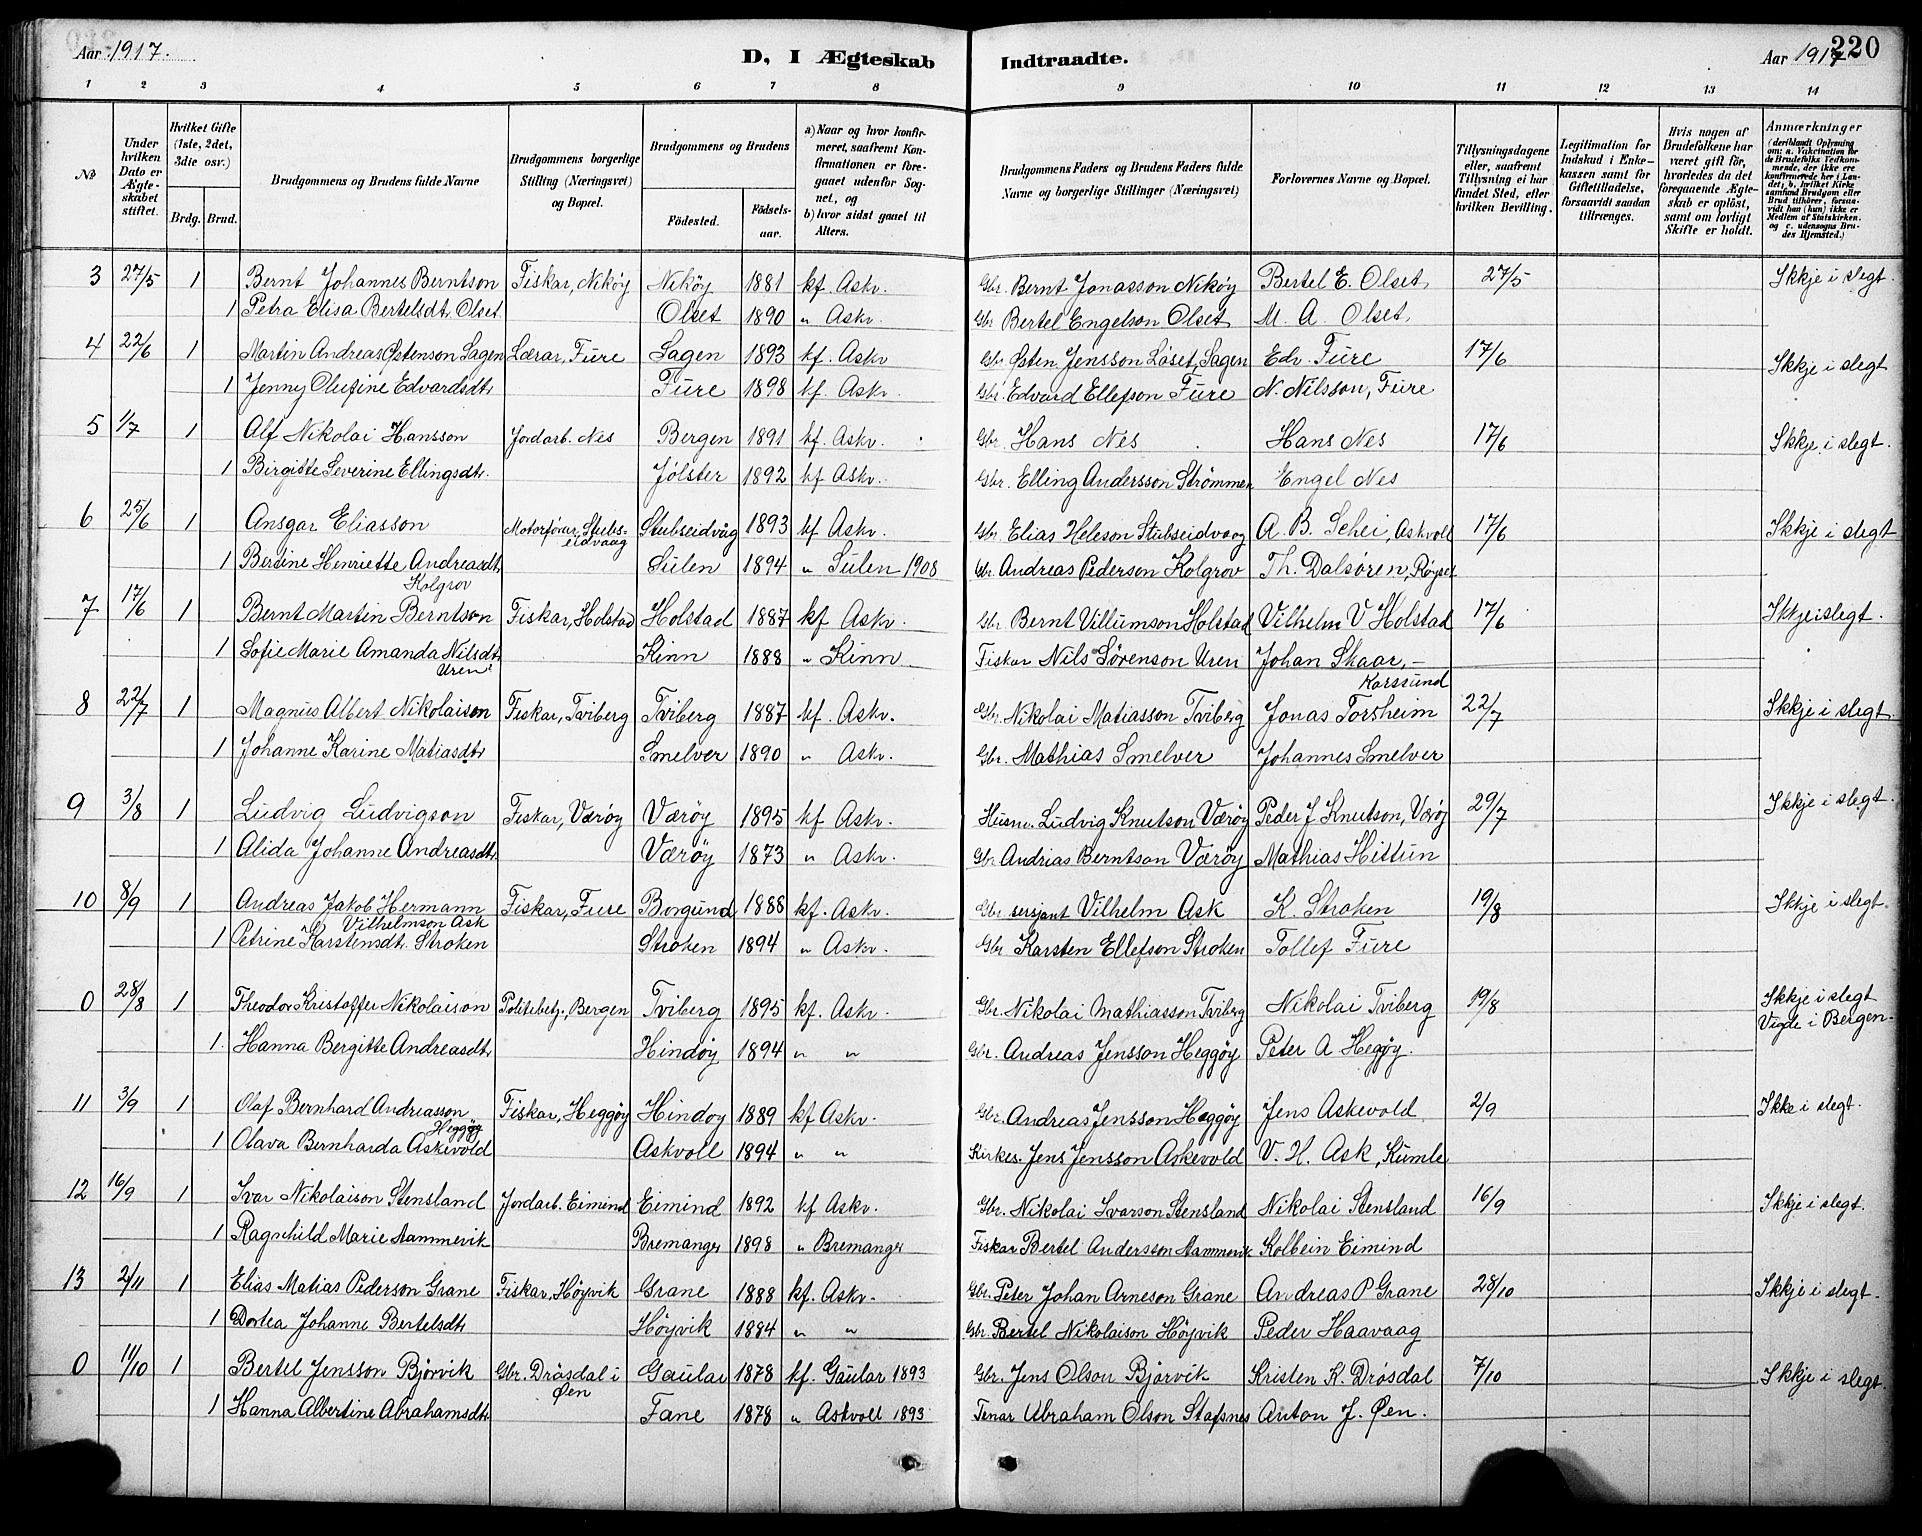 Aar 1917.
D, I Ægteskab Indtraadte.
Aar 1917
220
1 2 3 4 5 6 7 8 9 10 11 12 13 14
No
Under hvilken Dato er Ægteskabet stiftet.
Hvilket Gifte (1ste, 2det, 3die osv.)
Brdg. Brud.
Brudgommens og Brudens fulde Navne
Brudgommens borgerlige Stilling (Næringsvei) og Bopæl.
Brudgommens og Brudens
Fødested. Fødselsaar.
a) Naar og hvor konfirmeret, saafremt Konfirmationen er foregaaet udenfor Sognet, og
b) hvor sidst gaaet til Alters.
Brudgommens Faders og Brudens Faders fulde Navne og borgerlige Stillinger (Næringsvei)
Forlovernes Navne og Bopæl.
Tillysningsdagene eller, saafremt Tillysning ei har fundet Sted, efter hvilken Bevilling.
Legitimation for Indskud i Enkekassen samt for Giftetilladelse, forsaavidt saadan tiltrænges.
Hvis nogen af Brudefolkene har været gift før, hvorledes da det foregaaende Ægteskab er opløst, samt om lovligt Skifte er holdt.
Anmærkninger (deriblandt Oplysning om: a. Vakcination for de Brudefolks Vedkommende, der ikke ere konfirmerede her i Landet; b. hvilket Kirkesamfund Brudgom eller Brud tilhører, forsaavidt han (hun) ikke er Medlem af Statskirken, og c. udensogns Brudes Hjemsted.)
3 27/5 1 Bernt Johannes Berntson Fiskar, Nikøy Nikøy 1881 kf. Askv. Gbr. Bernt Jonasson Nikøy Bertel E. Olset 27/5 Ikkje i slegt.
1 Petra Elisa Bertelsdt. Olset Olset 1890 " Askv. Gbr. Bertel Engelson Olset M. A. Olset.
4 22/6 1 Martin Andreas Østenson Sagen Lærar, Fure Sagen 1893 kf. Askv. Gbr. Østen Jensson Løset, Sagen Edv. Fure 17/6 Ikkje i slegt
1 Jenny Olufine Edvardsdt. Fure 1898 kf. Askv. Gbr. Edvard Ellefson Fure N. Nilsson, Fure
5 1/7 1 Alf Nikolai Hansson Jordarb. Nes Bergen 1891 kf. Askv. Gbr. Hans Nes Hans Nes 17/6 Ikkje i slegt.
1 Birgitte Severine Ellingsdt. Jølster 1892 kf Askv. Gbr. Elling Andersson Strømmen Engel Nes
6 25/6 1 Ansgar Eliasson Motorførar, Stubseidvaag Stubseidvåg 1893 kf Askv. Gbr. Elias Heleson Stubseidvaag A. B. Schei, Askvoll 17/6 Ikkje i slegt
1 Berdine Henriette Andreasdt. Kolgrov Sulen 1894 " Sulen 1908 Gbr. Andreas Pederson Kolgrov Th. Dalsøren, Røyset
7 17/6 1 Bernt Martin Berntson Fiskar, Holstad Holstad 1887 kf Askv. Gbr. Bernt Villumson Holstad Vilhelm V Holstad 17/6 Ikkje i slegt.
1 Sofie Marie Amanda Nilsdt. Uren Kinn 1888 " Kinn Fiskar Nils Sørenson Uren Johan Skaar, Karssund
8 22/7 1 Magnus Albert Nikolaison Fiskar, Tviberg Tviberg 1887 kf. Askv. Gbr. Nikolai Matiasson Tviberg Jonas Torsheim 22/7 Ikkje i slegt.
1 Johanne Karine Matiasdt. Smelver 1890 " Askv. Gbr. Mathias Smelver Johannes Smelver
9 3/8 1 Ludvig Ludvigson Fiskar, Værøy Værøy 1895 kf Askv. Husm. Ludvig Knutson Værøy Peder J Knutson, Værøy 29/7 Ikkje i slegt.
1 Alida Johanne Andreasdt. Værøy 1873 " Askv. Gbr. Andrias Berntson Værøy Mathias Hittun
10 8/9 1 Andreas Jakob Hermann Vilhelmson Ask Fiskar, Fure Borgund 1888 kf. Askv. Gbr. sersjant Vilhelm Ask K. Stroken 19/8 Ikkje i slegt.
1 Petrine Karstensdt. Stroken Stroken 1894 " Askv. Gbr Karsten Ellefson Stroken Tollef Fure
0 28/8 1 Theodor Kristoffer Nikolaison Politebetj., Bergen Tviberg 1895 kf. Askv. Gbr. Nikolai Mathiasson Tviberg Nikolai Tviberg 19/8 Ikkje i slegt Vigde i Bergen.
1. Hanna Bergitte Andreasdt. Hindøy 1894 " " Gbr. Andreas Jensson Heggøy Peter A Heggøy.
11 3/9 1 Olaf Bernhard Andreasson Heggøy Fiskar, Heggøy Hindøy 1889 kf Askv. Gbr. Andreas Jensson Heggøy Jens Askevold 2/9 Ikke i slegt.
1 Olava Bernharda Askevold Askvoll 1894 " " Kirkes. Jens Jensson Askevold V. H. Ask, Kumle
12 16/9 1 Ivar Nikolaison Stensland Jordarb. Eimind Eimind 1892 kf Askv. Gbr. Nikolai Ivarson Stensland Nikolai Stensland 16/9 Ikkje i slegt.
1 Ragnhild Marie Hammervik Bremanger 1898 " Bremanger Fiskar Bertel Andersson Hammervik Kolbein Eimind
13 2/11 1 Elias Matias Pederson Grane Fiskar, Høyvik Grane 1888 kf. Askv. Gbr. Peter Johan Arneson Grane Andreas P Grane 28/10 Ikkje i slegt.
1 Dortea Johanne Bertelsdt. Høyvik 1884 " " Gbr. Bertel Nikolaison Høyvik Peder Haavaag
0 11/10 1 Bertel Jensson Bjørvik Gbr. Drøsdal i Øen Gaular 1878 kf. Gaular 1893 Gbr. Jens Olson Bjørvik Kristen K. Drøsdal 7/10 Ikkje i slegt.
1 Hanna Albertine Abrahamsdt. Fane 1878 " Askvoll 1893 Tenar Abraham Olson Stafsnes Anton J. Øen.